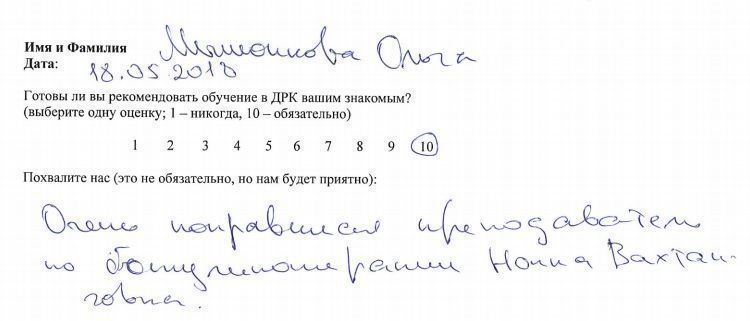 Имя и Фамилия Мышонкова Ольга
Дата: 18.05.2018
Готовы ли вы рекомендовать обучение в ДРК вашим знакомым?
(выберите одну оценку; 1 – никогда, 10 – обязательно)
1 2 3 4 5 6 7 8 9 10
Похвалите нас (это не обязательно, но нам будет приятно):
Очень понравился преподаватель
по ботулинотерапии Нонна Вахтан-
говна.